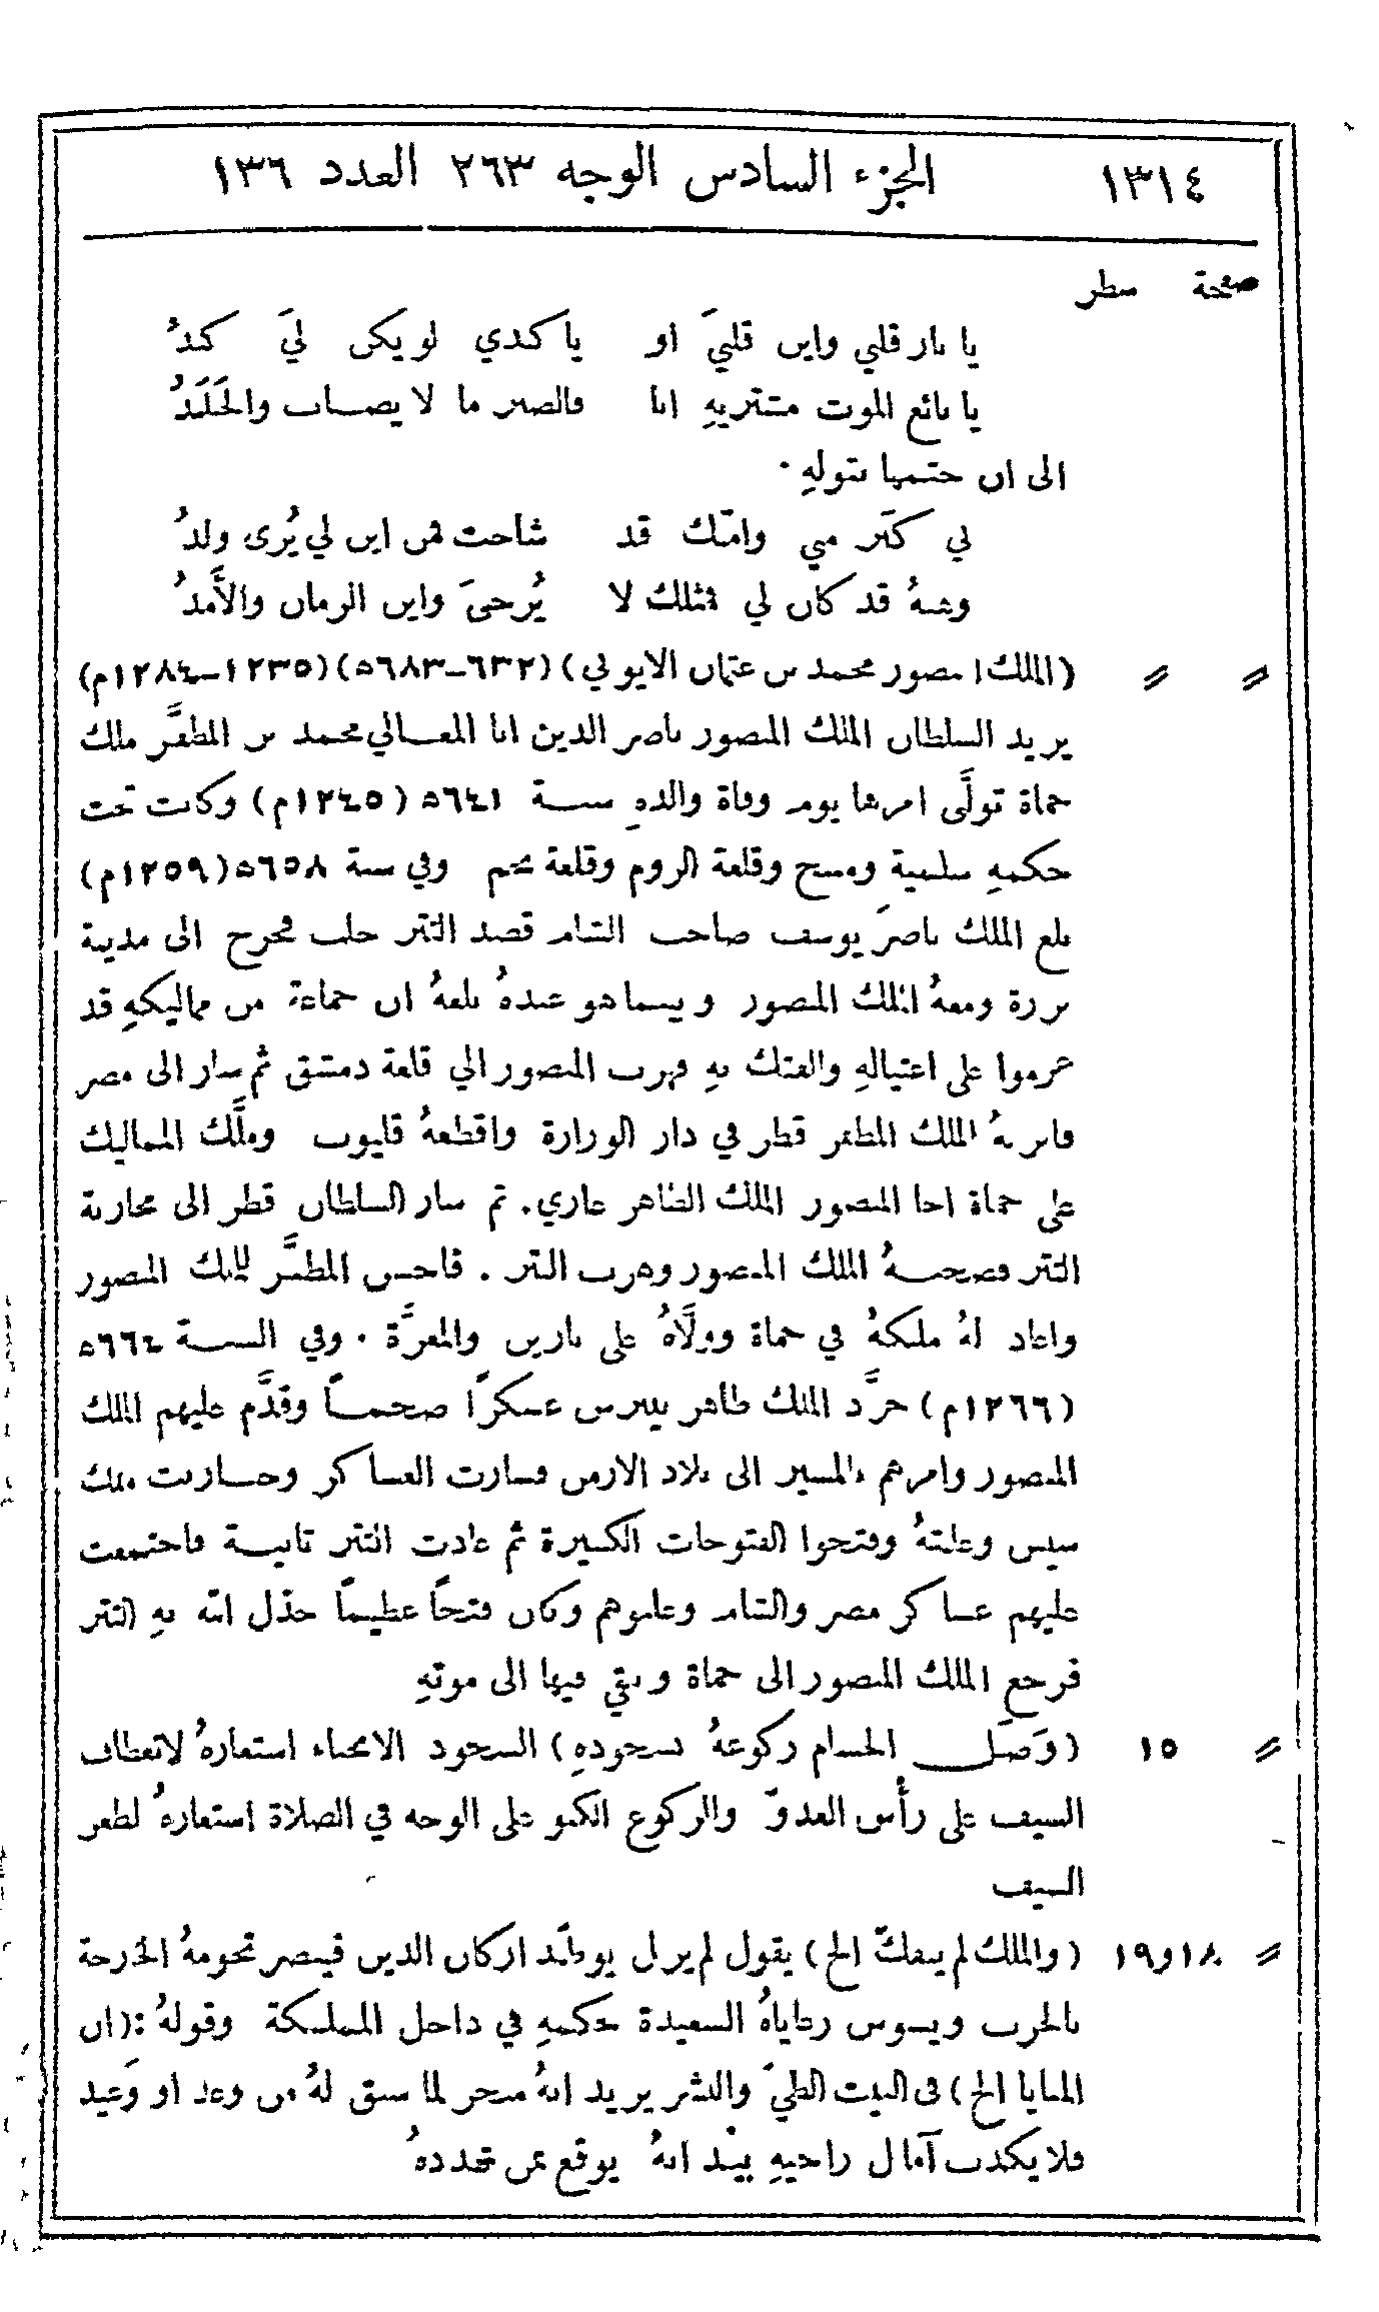 ١٣١٤ الجزء السادس الوجه ٢٦٣ العدد ١٣٦
صفحة سطر
يا نار قلبي واين قلبيَ او يا كبدي لو يكن ليَ كبدُ
يا بائع الموت مشتريهِ انا فالصبر ما لا يصاب والجَلَدُ
الى ان ختمها بقولهِ ٠
لي كَبَر مني وامّك قد شاخت فمن اين لي يُرى ولدُ
وشبهُ قد كان لي فمثلك لا يُرجىَ واين الزمان والأَمدُ
〃 〃 (الملك المنصور محمد بن عثمان الايوبي) (٦٣٢-٦٨٣ھ) (١٢٣٥-١٢٨٤م)
يريد السلطان الملك المنصور ناصر الدين ابا المعالي محمد بن المظفَّر ملك
حماة تولَّى امرها يوم وفاة والدهِ سنة ٦٤١ھ (١٢٤٥م) وكانت تحت
حكمهِ سلمية ومنبج وقلعة الروم وقلعة نجم وفي سنة ٦٥٨ھ (١٢٥٩م)
بلغ الملك ناصرَ يوسف صاحب الشام قصد التتر حلب فخرج الى مدينة
برزة ومعهُ الملك المنصور وبينما هو عندهُ بلغهُ ان جماعة من مماليكهِ قد
عزموا على اغتيالهِ والفتك بهِ فهرب المنصور الي قلعة دمشق ثم سار الى مصر
فانزلهُ الملك المظفر قطز في دار الوزارة واقطعهُ قليوب وملَّك المماليك
على حماة اخا المنصور الملك الظاهر غازي. ثم سار السلطان قطز الى محاربة
التتر فصحبهُ الملك المنصور وهرب التتر . فاحسن المظفَّر للملك المنصور
واعاد لهُ ملكهُ في حماة وولَّاهُ على بارين والمعرَّة ٠ وفي السنة ٦٦٤ھ
(١٢٦٦م) جرَّد الملك ظاهر بيبرس عسكرًا ضخمًا وقدَّم عليهم الملك
المنصور وامرهم بالمسير الى بلاد الارمن فسارت العساكر وحاربت ملك
سيس وغلبتهُ وفتحوا الفتوحات الكبيرة ثم عادت التتر ثانية فاجتمعت
عليهم عساكر مصر والشام وغلبوهم وكان فتحًا عظيمًا خذل الله بهِ التتر
فرجع الملك المنصور الى حماة وبقي فيها الى موتهِ
〃 ١٥ (وَصَل الحسام ركوعهُ بسجودهِ) السجود الانحناء استعارهُ لانعطاف
السيف على رأس العدوّ والركوع الكبو على الوجه في الصلاة استعارهُ لظفر
السيف
〃 ١٨و١٩ (والملك لم ينفكّ الخ) يقول لم يزل يوطّد اركان الدين فينصر تخومهُ الخارجة
بالحرب ويسوس رعاياهُ السعيدة بحكمهِ في داخل المملكة وقولهُ : (ان
المنايا الخ) في البيت الطيّ والنشر يريد انهُ منجز لما سبق لهُ من وعد او وَعيد
فلا يكذب آمال راجيهِ بيْد انهُ يوقع بمن تهددهُ